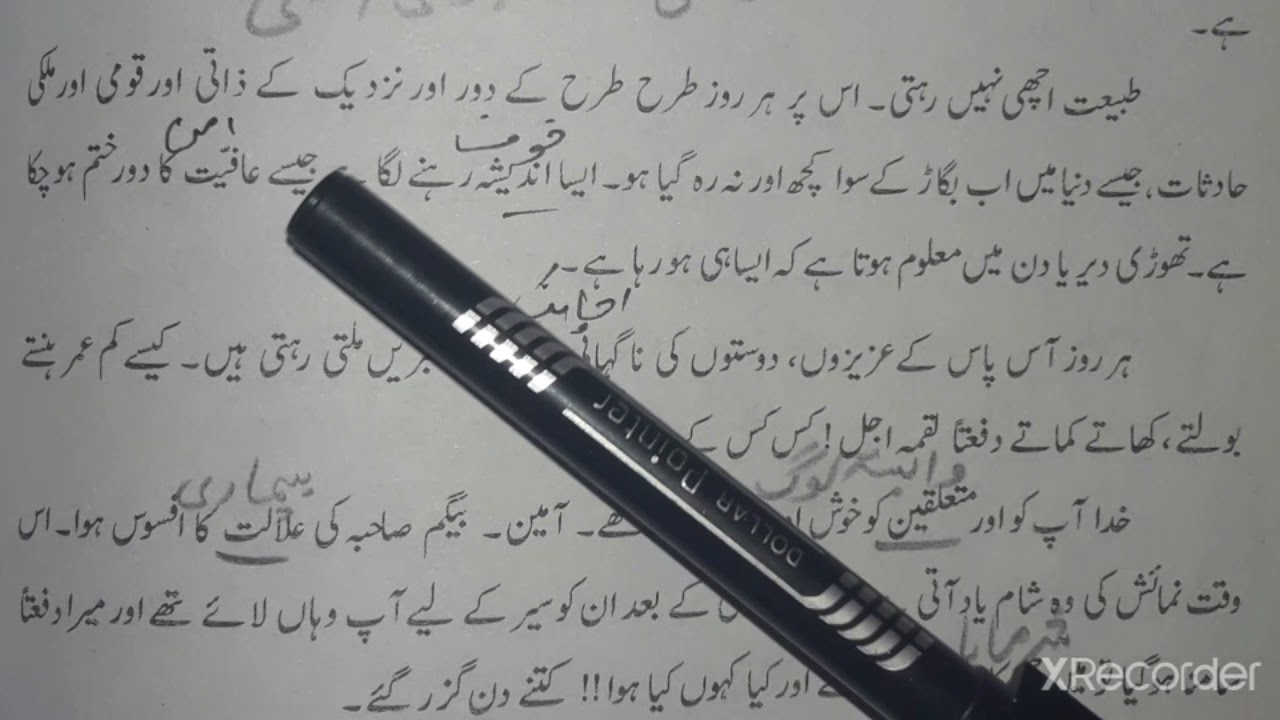 ہے۔
طبیعت اچھی نہیں رہتی۔ اس پر ہر روز طرح طرح کے دور اور نزدیک کے ذاتی اور قومی اور ملکی
خوف امن
حادثات، جیسے دنیا میں اب بگاڑ کے سوا کچھ اور نہ رہ گیا ہو۔ ایسا اندیشہ رہنے لگا جیسے عافیّت کا دور ختم ہو چکا
ہے۔ تھوڑی دیر یا دن میں معلوم ہوتا ہے کہ ایسا ہی ہو رہا ہے۔
اچانک
ہر روز آس پاس کے عزیزوں، دوستوں کی ملتی رہتی ہیں۔ کیسے کم عمر ہنستے
بولتے، کھاتے کماتے دفعتاً لقمہ اجل! کس کس کے
وابستہ لوگ بیماری
خدا آپ کو اور متعلقین کو خوش آمین۔ بیگم صاحبہ کی علالت کا افسوس ہوا۔ اس
وقت نمائش کی وہ شام یاد آتی کے بعد ان کو سیر کے لیے آپ وہاں لائے تھے اور میرا دفعتاً
شرمایا
سامنا ہو گیا تو اور کیا کہوں کیا ہوا!! کتنے دن گزر گئے۔
DOLLAR Pointer
XRecorder